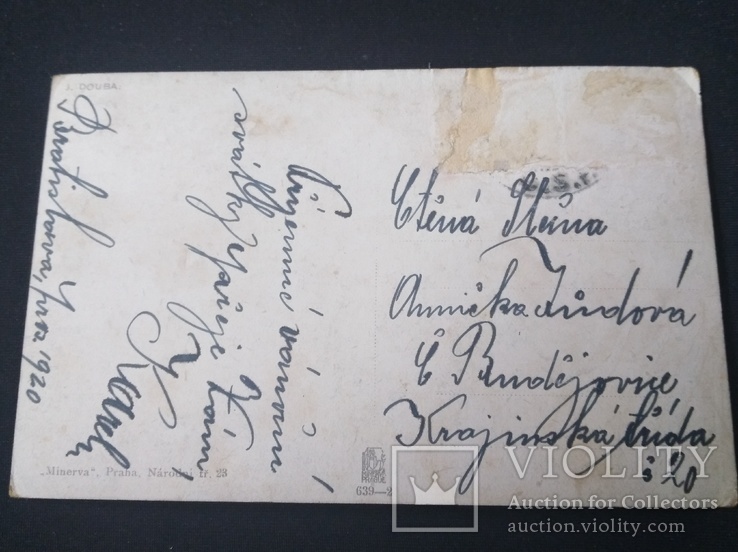 J. DOUBA.
Bratislava, 1920
Příjemné vánoční
svátky přeje Vám
Karel
Ctěná Slečna
Annička Jůdová
Č Budějovice
Krajinská třída
č 20
Č.S.
„Minerva“, Praha, Národní tř. 23
639—2
VIOLITY
Auction for Collectors
auction.violity.com